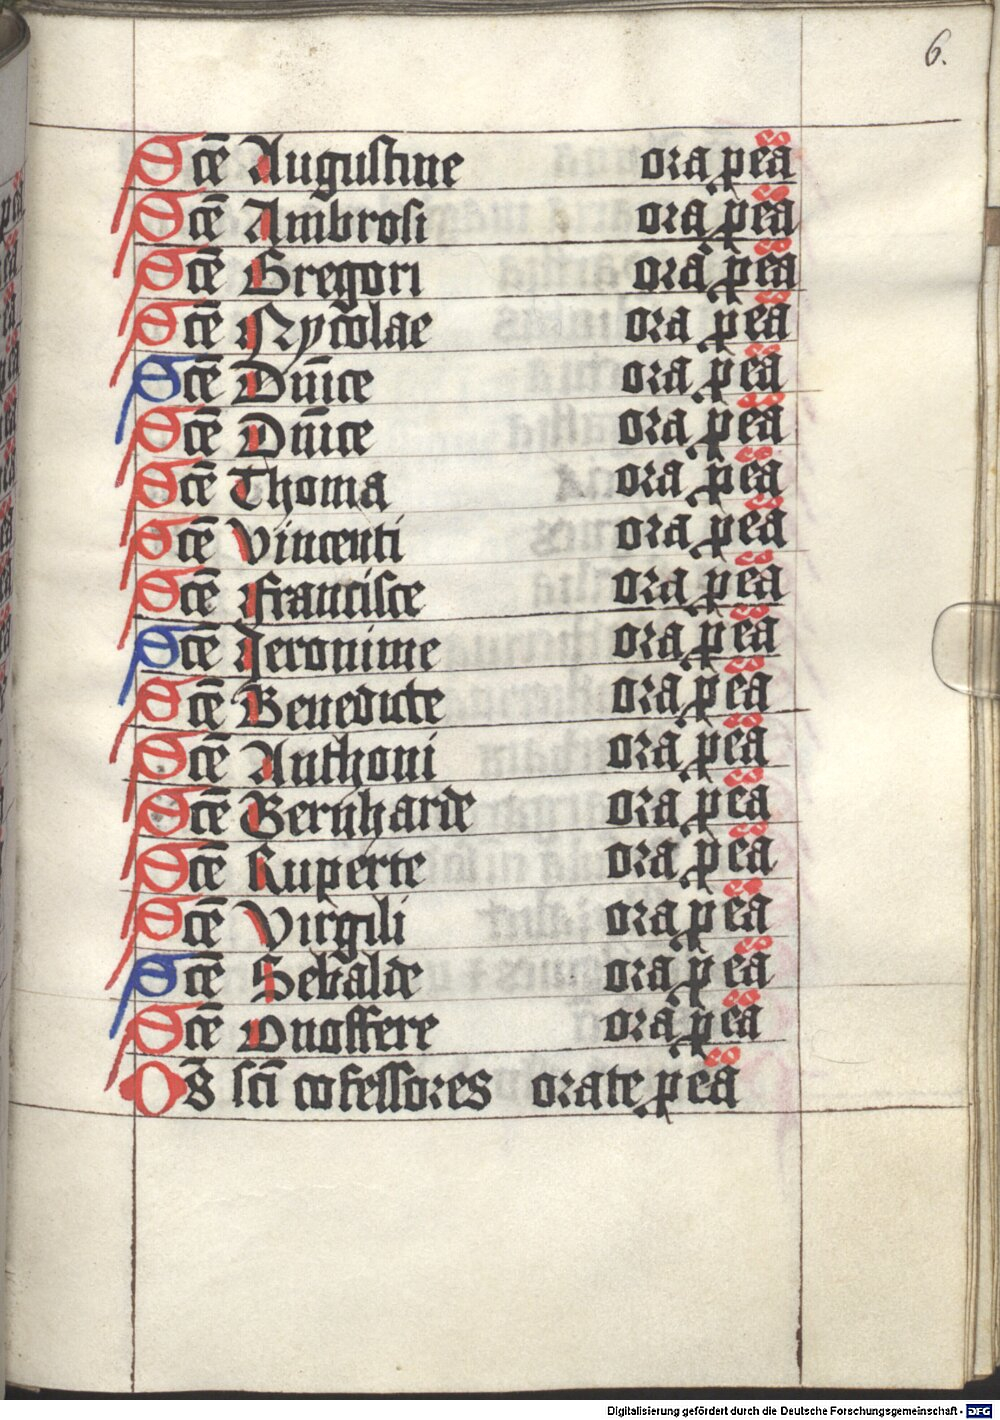 6.
Scē Augustine ora p eā
Scē Ambrosi ora p eā
Scē Gregori ora p eā
Scē Nycolae ora p eā
Scē Dn̄ice ora p eā
Scē Dn̄ice ora p eā
Scē Thoma ora p eā
Scē Vincenti ora p eā
Scē Francisce ora p eā
Scē Jeronime ora p eā
Scē Benedicte ora p eā
Scē Anthoni ora p eā
Scē Bernharde ora p eā
Scē Ruperte ora p eā
Scē Virgili ora p eā
Scē Sebalde ora p eā
Scē Onoffere ora p eā
Os̄ sc̄i cōfessores orate p eā
Digitalisierung gefördert durch die Deutsche Forschungsgemeinschaft - DFG